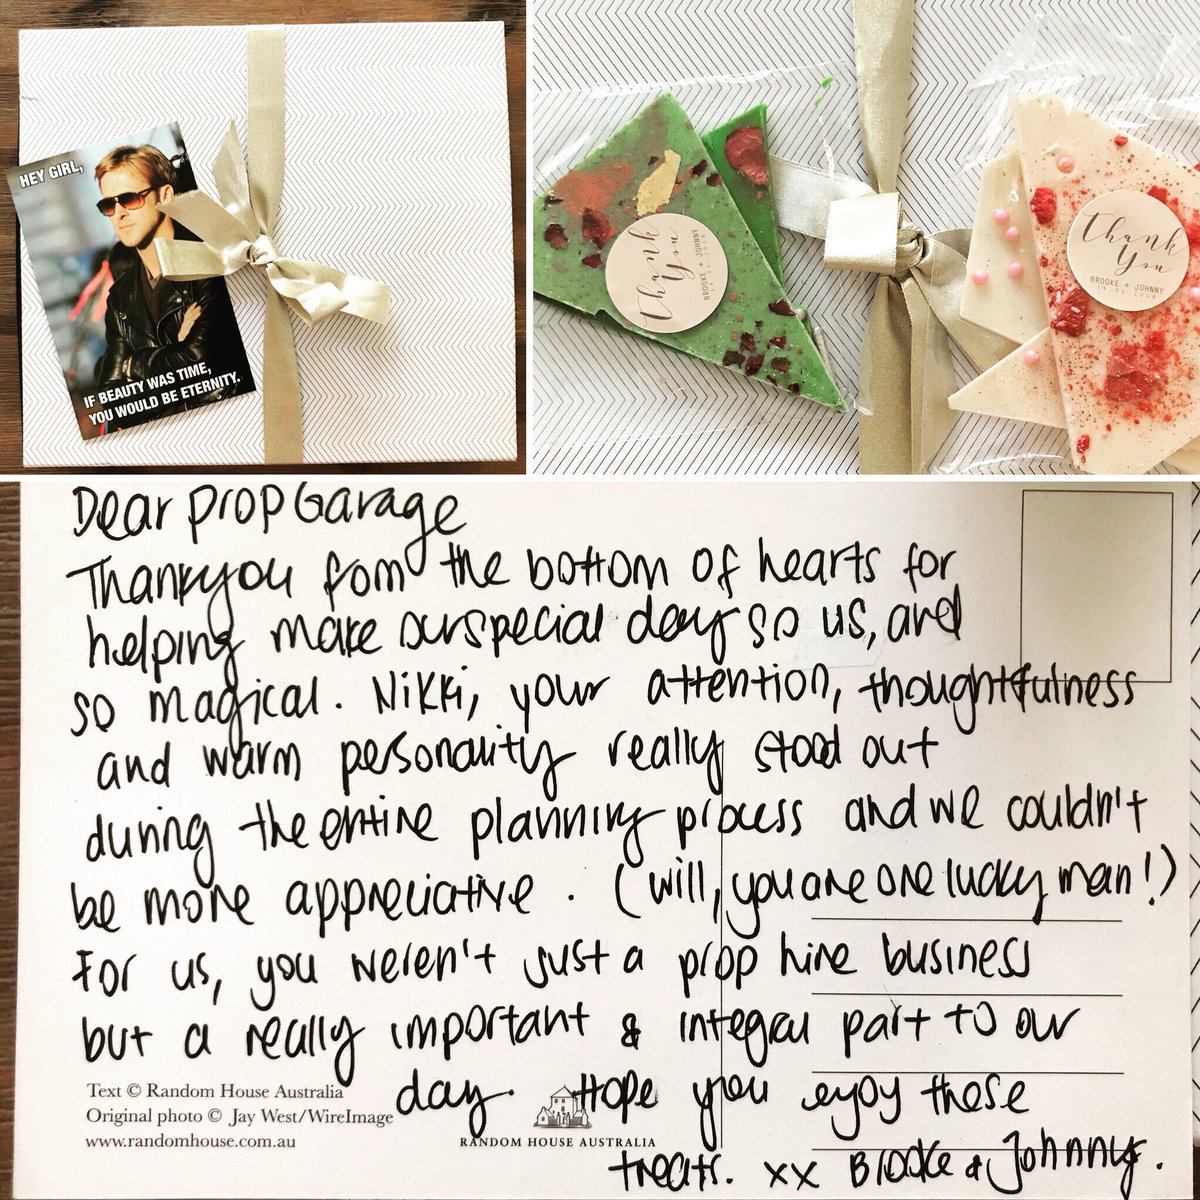 HEY GIRL,
IF BEAUTY WAS TIME,
YOU WOULD BE ETERNITY.
Thank
You
BROOKE + JOHNNY
Thank
You
BROOKE + JOHNNY
19.05.2018
Dear Prop Garage
Thankyou fom the bottom of hearts for
helping make our special day so us, and
so magical. Nikki, your attention, thoughtfulness
and warm personality really stood out
during the entire planning process and we couldn't
be more appreciative. (Will, you are one lucky man!)
For us, you weren't just a prop hire business
but a really important & integral part to our
day. Hope you enjoy these
treats. xx Brooke & Johnny.
Text © Random House Australia
Original photo © Jay West/WireImage
www.randomhouse.com.au
RANDOM HOUSE AUSTRALIA